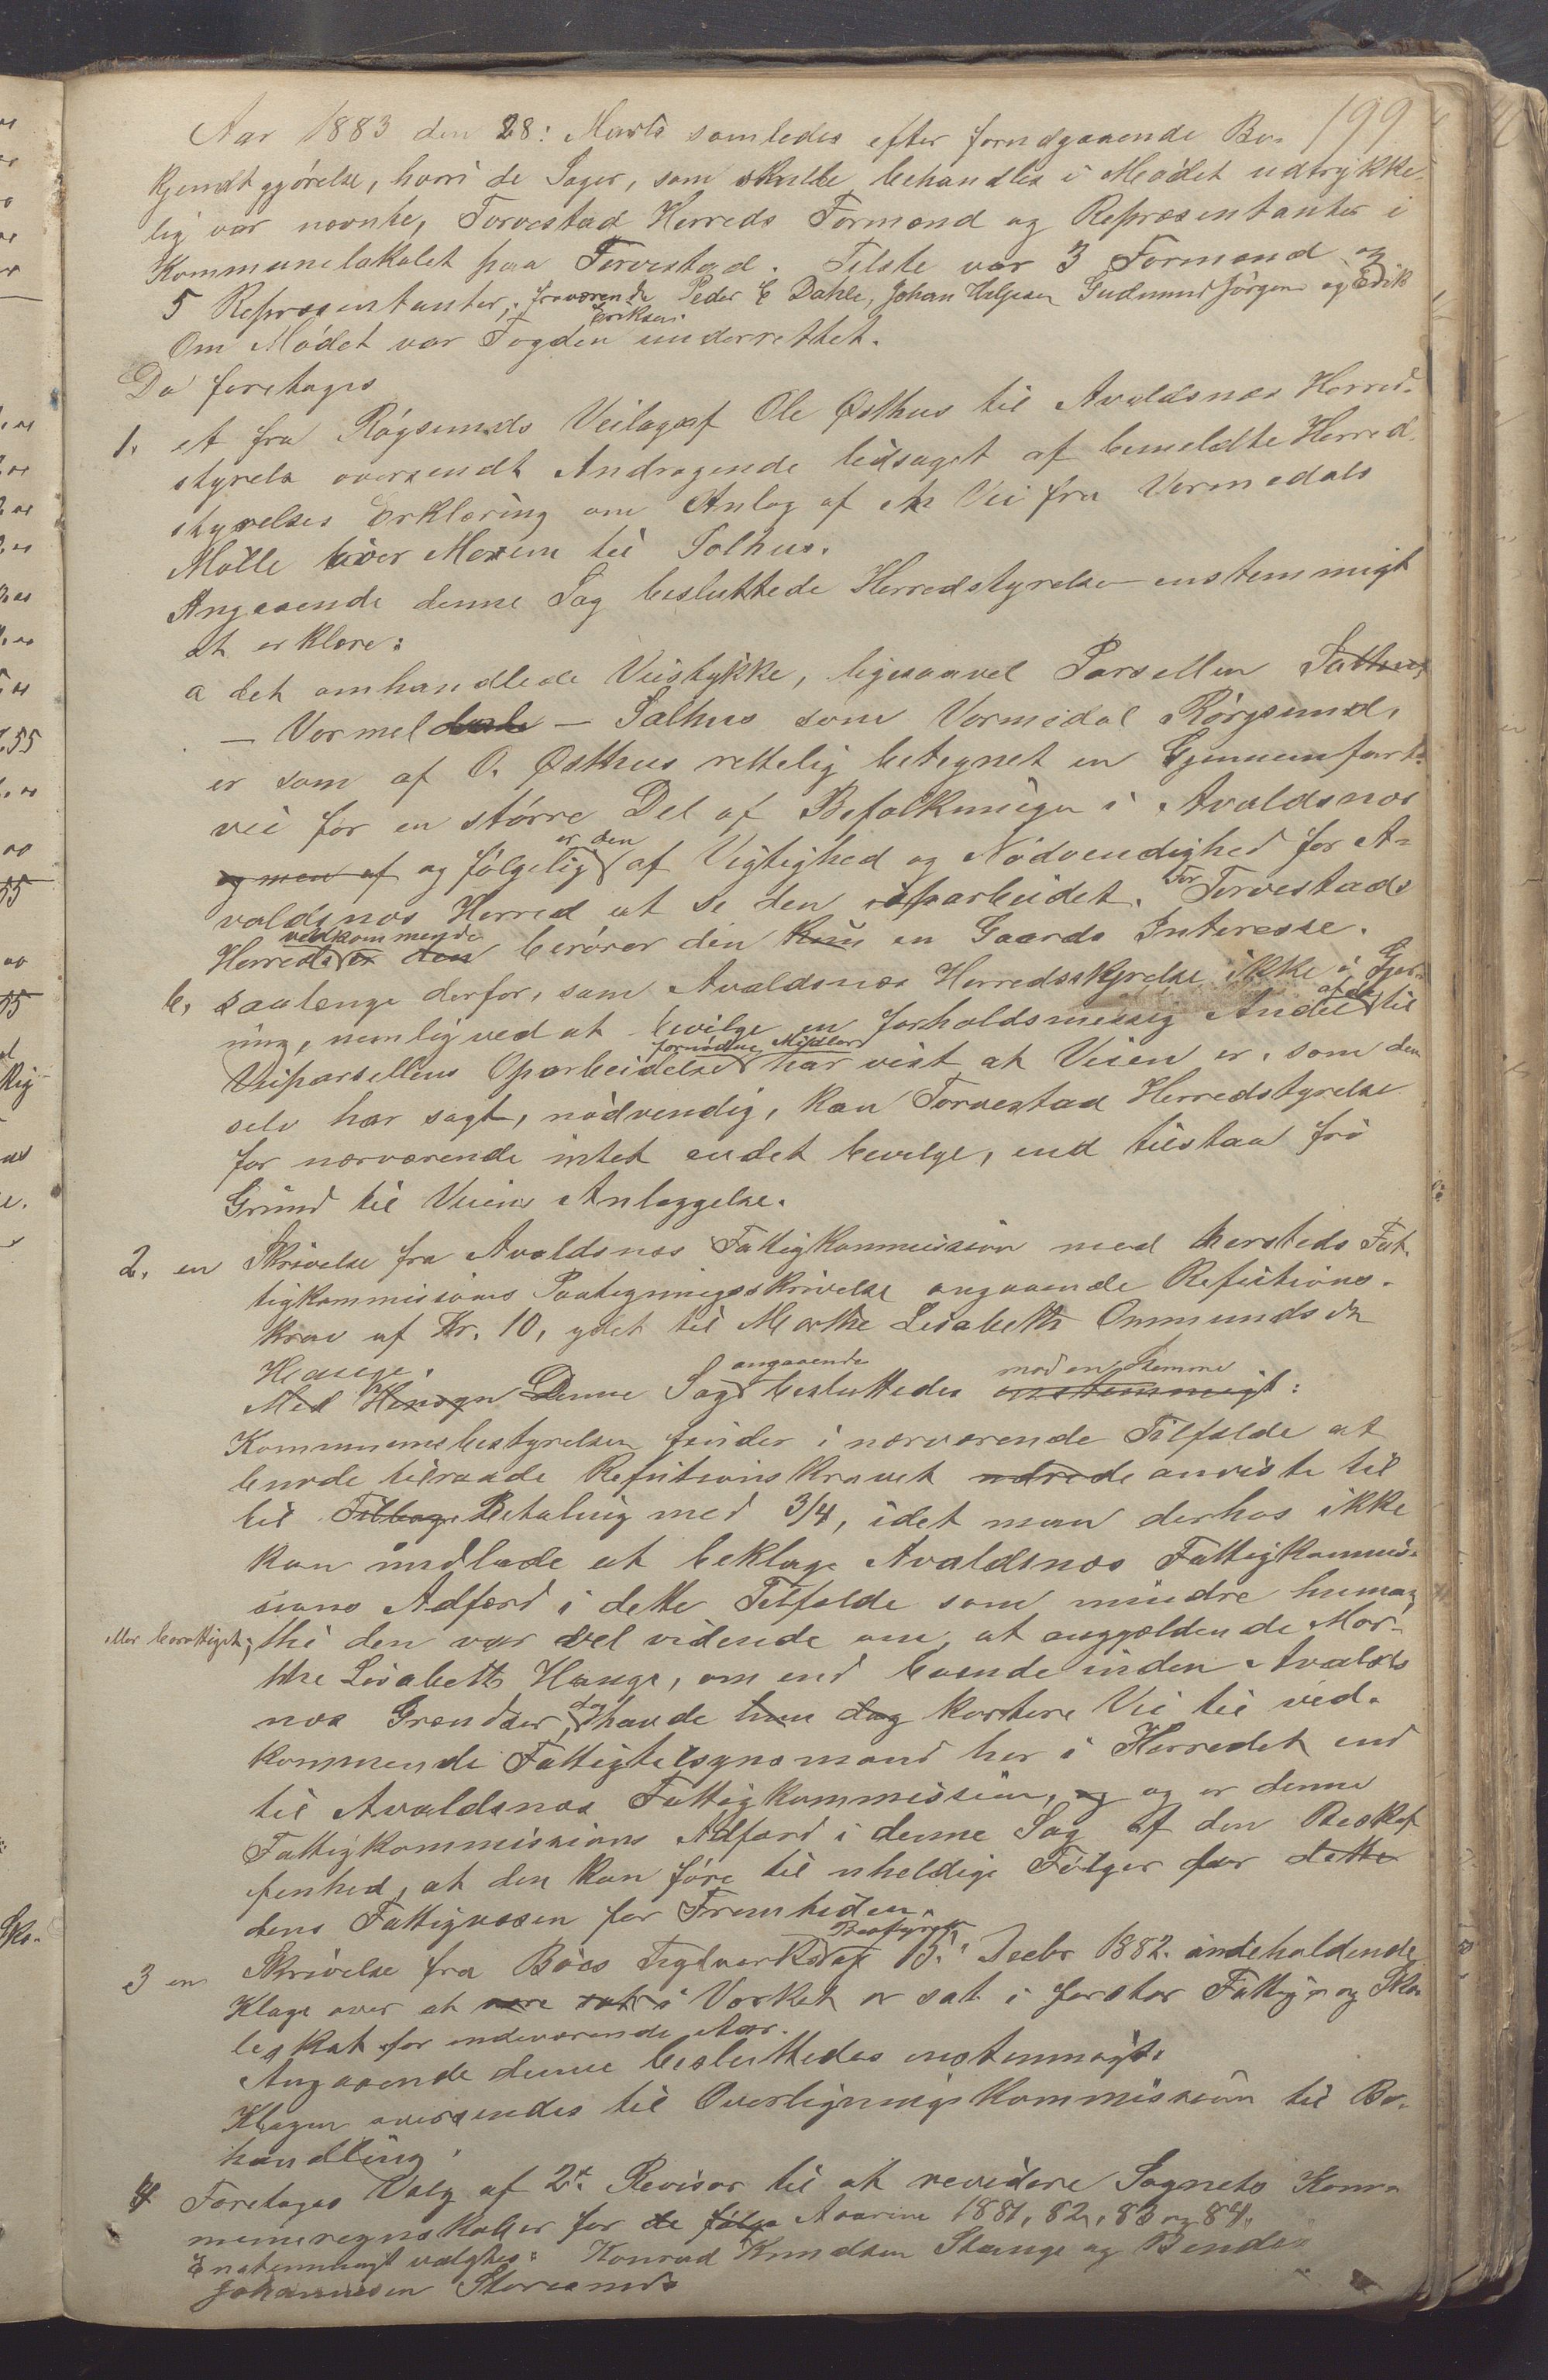 199
Aar 1883 den 28: Marts samledes efter forudgaaende Be-
kjendtgjørelse, hvori de Sager, som skulde behandles i Mødet udtrykke-
lig var nævnte, Torvestad Herreds Formænd og Repræsentanter i
Kommunelokalet paa Torvestad. Tilste var 3 Formænd og
5 Repræsentanter; fraværende Peder E Dahle, Johan Helgesen Gudmund Jörgens og Edik
Eriksen.
Om Mødet var Fogden underrettet.
Da foretoges
1. et fra Røgsunds Veilag af Ole Østhus til Avaldsnæs Herred-
styrels oversendt Andragende ledsaget af bemeldte Herred
styrelses Erklæring om Anlæg af en Vei fra Vormedals
Mølle over Moxeim til Salhus.
Angaaende denne Sag besluttede Herredstyrelse enstemmigt
at erklære:
a det omhandlede Veistykke, ligesaavel Parsellen Salhus
— Vormel dals — Salhus som Vormedal Rørgsund,
er som af O. Østhus rettelig betegnet en Gjennemfarts-
vei for en større Del af Befolkningen i Avaldsnæs
og men af og følgelig er den af Vigtighed og Nødvendighed for A-
valdsnæs Herred at se den oparbeidet. For Torvestads
Herreds vedkommende er den berører den kun en Gaards Interesse.
b. saalenge derfor, som Avaldsnæs Herredsstyrelse ikke i Gjer-
ning, nemlig ved at bevilge en forholdsmessig Andel af de til
Veiparsellens Oparbeidelse fornødne Midler har vist at Veien er, som den
selv har sagt, nødvendig, kan Torvestad Herredstyrelse
for nærværende intet andet bevilge, end tilstaa fri
Grund til Veiens Anlæggelse.
2. en Skrivelse fra Avaldsnæs Fattigkommission med hersteds Fat-
tigkommissions Paategningsskrivelse angaaende Refusions-
krav af Kr. 10, ydet til Marthe Lisabeth Ommundsdt
Hauge.
Med Hensyn Denne Sag angaaende besluttedes mod en Stemme enstemmigt:
Kommunebestyrelsen finder i nærværende Tilfælde at
burde tilraade Refusionskravet udrede anviste til
til Tilbage Betaling med 3/4, idet man derhos ikke
kan undlade at beklage Avaldsnæs Fattigkommis-
sions Adfærd i dette Tilfælde som mindre human
eller berettiget; thi den var vel vidende om, at angjældende Mar-
the Lisabeth Hauge, om end boende inden Avalds
næs Grændser, dog havde hun dog kortere Vei til ved-
kommende Fattigtilsynsmand her i Herredet end
til Avaldsnæs Fattigkommission, og og er denne
Fattigkommissions Adfærd i denne Sag af den Beskaf
fenhed, at den kan føre til uheldige Følger for dette
dens Fattigvæsen for Fremtiden.
3 en Skrivelse fra Bøes Teglverks Bestyrer af 15: Decbr 1882 indeholdende
Klage over at være sat i Værket er sat i forstor Fattig- og Sko
leskat for indeværende Aar.
Angaaende denne besluttedes enstemmigt:
Klagen oversendes til Overligningskommission til Be-
handling.
4 Foretoges Valg af 2de Revisor til at revidere Sognets Kom-
muneregnskaber for de følge Aarene 1881, 82, 83 og 84.
Enstemmigt valgtes: Konrad Knudsen Stange og Bendix
Johannesen Storesund